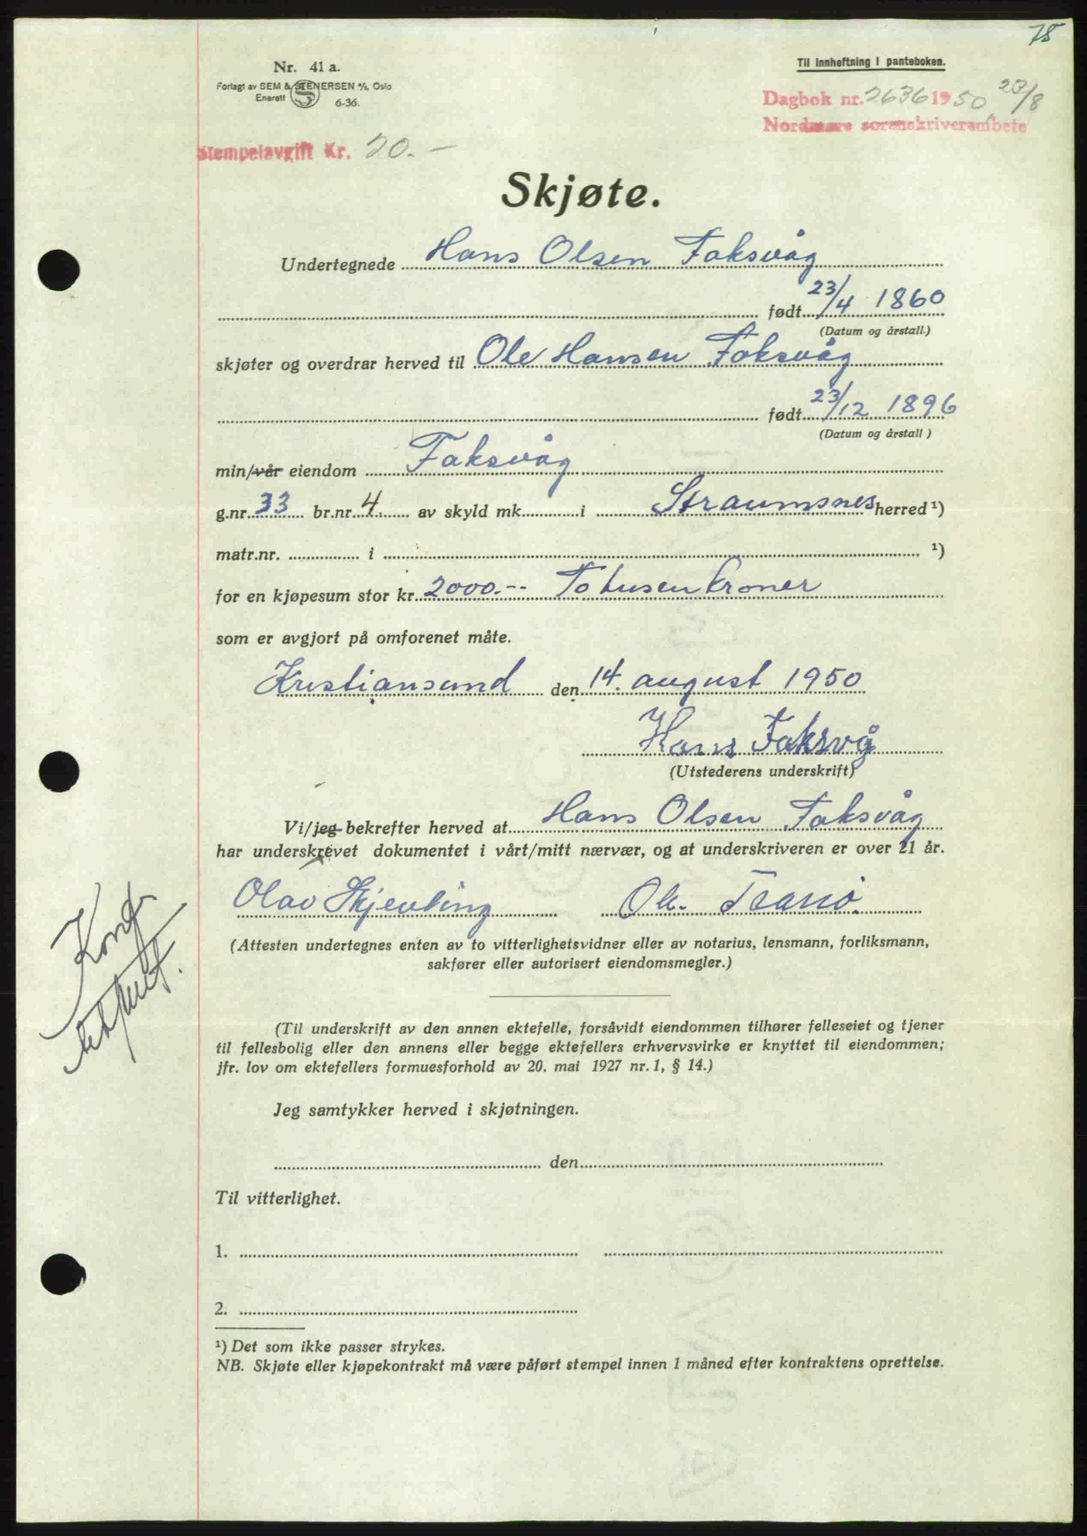 78
Nr. 41 a.
Forlagt av SEM & STENERSEN A/S, Oslo
Enerett S 6-36.
Til innheftning i panteboken.
Dagbok nr. 2636 1950 23/8
Nordmøre sorenskriverembete
Stempelavgift Kr. 20.–
Skjøte.
Undertegnede Hans Olsen Faksvåg
født 23/4 1860
(Datum og årstall.)
skjøter og overdrar herved til Ole Hansen Faksvåg
født 23/12 1896
(Datum og årstall)
min/vår eiendom Faksvåg
g.nr. 33 br.nr. 4 av skyld mk. i Straumsnes herred ¹)
matr.nr. i ¹)
for en kjøpesum stor kr. 2000.-- To tusen kroner
som er avgjort på omforenet måte.
Kristiansund den 14. august 1950
Hans Faksvåg
(Utstederens underskrift)
Vi/jeg bekrefter herved at Hans Olsen Faksvåg
har underskrevet dokumentet i vårt/mitt nærvær, og at underskriveren er over 21 år.
Olav Skjevling Ole
(Attesten undertegnes enten av to vitterlighetsvidner eller av notarius, lensmann, forliksmann,
sakfører eller autorisert eiendomsmegler.)
(Til underskrift av den annen ektefelle, forsåvidt eiendommen tilhører felleseiet og tjener
til fellesbolig eller den annens eller begge ektefellers erhvervsvirke er knyttet til eiendommen;
jfr. lov om ektefellers formuesforhold av 20. mai 1927 nr. 1, § 14.)
Jeg samtykker herved i skjøtningen.
den
Til vitterlighet.
1.
2.
¹) Det som ikke passer strykes.
NB. Skjøte eller kjøpekontrakt må være påført stempel innen 1 måned efter kontraktens oprettelse.